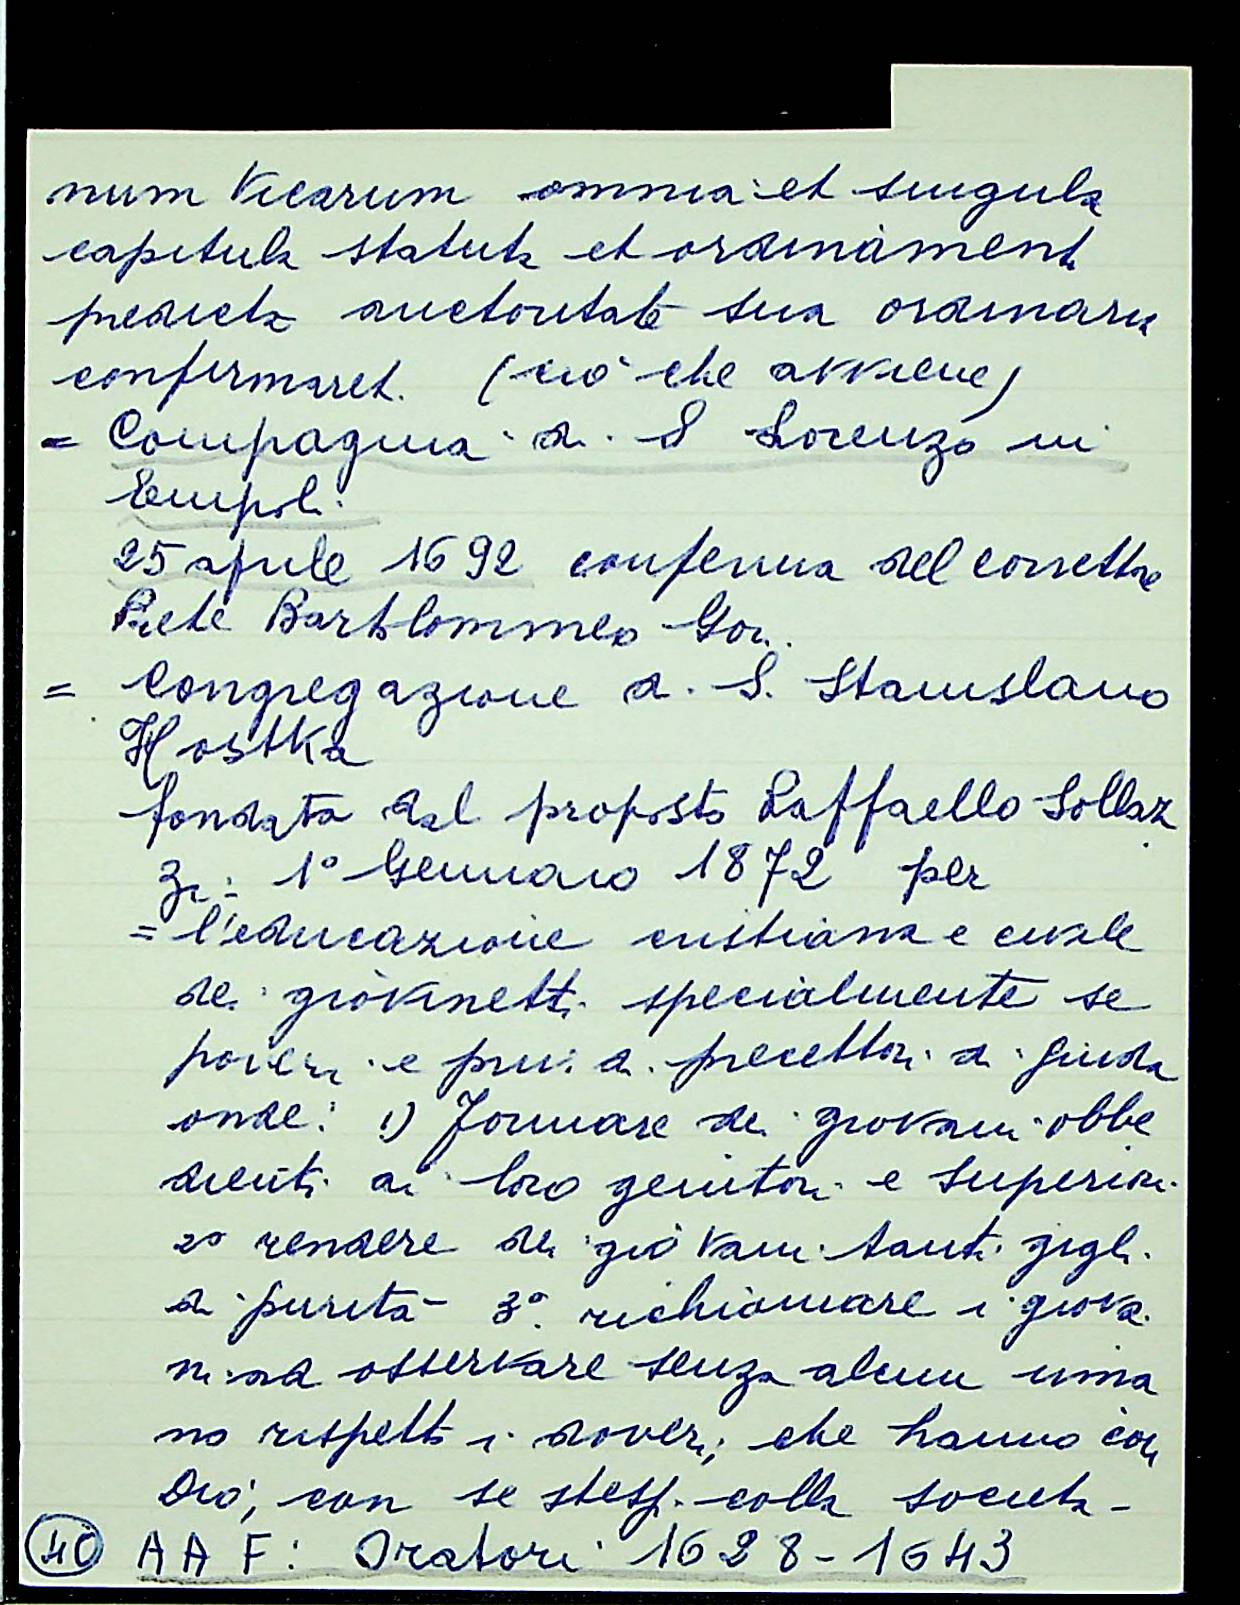 num Vicarium omnia et singula
capitula statuta et ordinamenta
predicta auctoritate sua ordinaria
confirmaret. (ciò che avviene)
= Compagnia di S Lorenzo in
Empoli.
25 aprile 1692 conferma del correttore
Prete Bartolommeo Gori.
= Congregazione di S. Stanislao
Kostka
fondata dal proposto Raffaello Sollaz
zi: 1° Gennaio 1872 per
= l'educazione cristiana e civile
dei giovinetti specialmente se
poveri e privi di precettori di guida
onde: 1) Formare dei giovani obbe
dienti ai loro genitori e superiori
2° rendere dei giovani tanti gigli
di purità - 3°. richiamare i giova
ni ad osservare senza alcun uma
no rispetto i doveri, che hanno con
Dio, con se stessi colla società -
40 A A F: Oratori 1628-1643